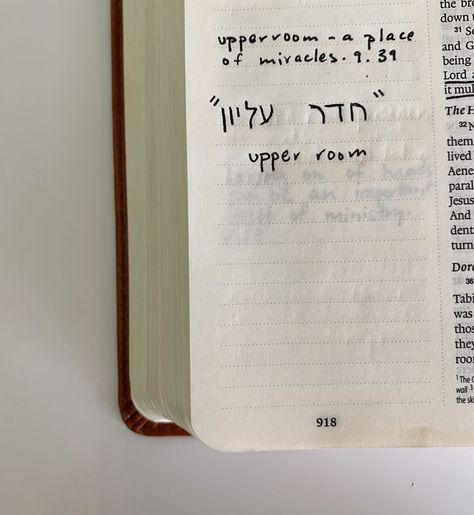 upper room - a place
of miracles. 9. 39
"חדר עליון"
upper room
918
down t
31 So
and G
being
Lord
it mul
The H
32 N
them
lived
Aene
paral
Jesus
And
dent
turn
Dor
36
Tabi
was
thos
they
roo
1 The G
wall 3
the sk